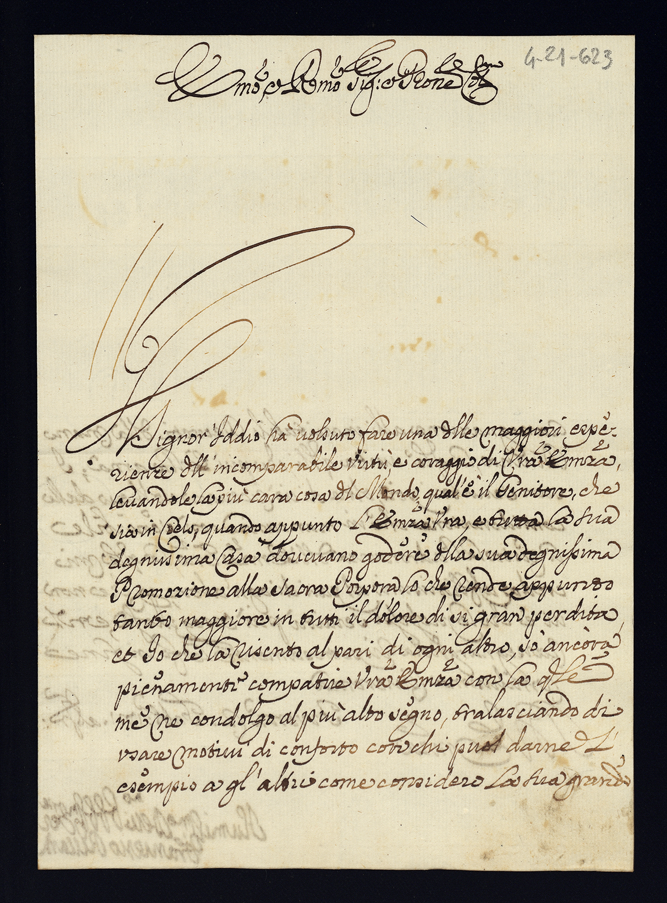 Emo, e Remo Sig: e Prone Col
4-21-623
Signor' Iddio hà uolsuto fare una dlle maggiori espe-
rienze dll' incomparabile Virtù, e coraggio di Vra Emza,
leuandole la più cara cosa dl Mondo, qual' è il Genitore, che
sia in Cielo, quando appunto l' Emza Vra, e tutta la sua
degnissima Casa doueuano godere dlla sua degnissima
Promozione alla sacra Porpora lo che rende appunto
tanto maggiore in tutti il dolore di si gran perdita,
et Io che la risento al pari di ogni altro, sò ancora
pienamente compatire Vra Emza con la qle
me ne condolgo al più alto segno, tralasciando di
usare motiui di conforto con chi puol darne l'
esempio a gl' altri come considero la sua grand